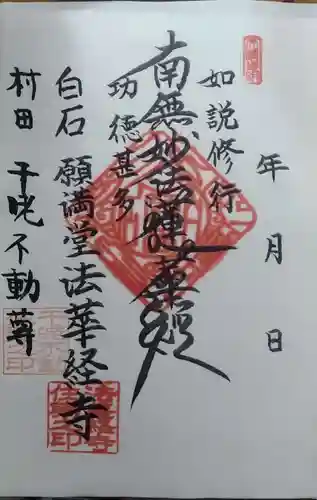 年 月 日
如説修行
南無妙法蓮華経
功徳甚多
白石 願満堂法華経寺
村田 子咤不動尊